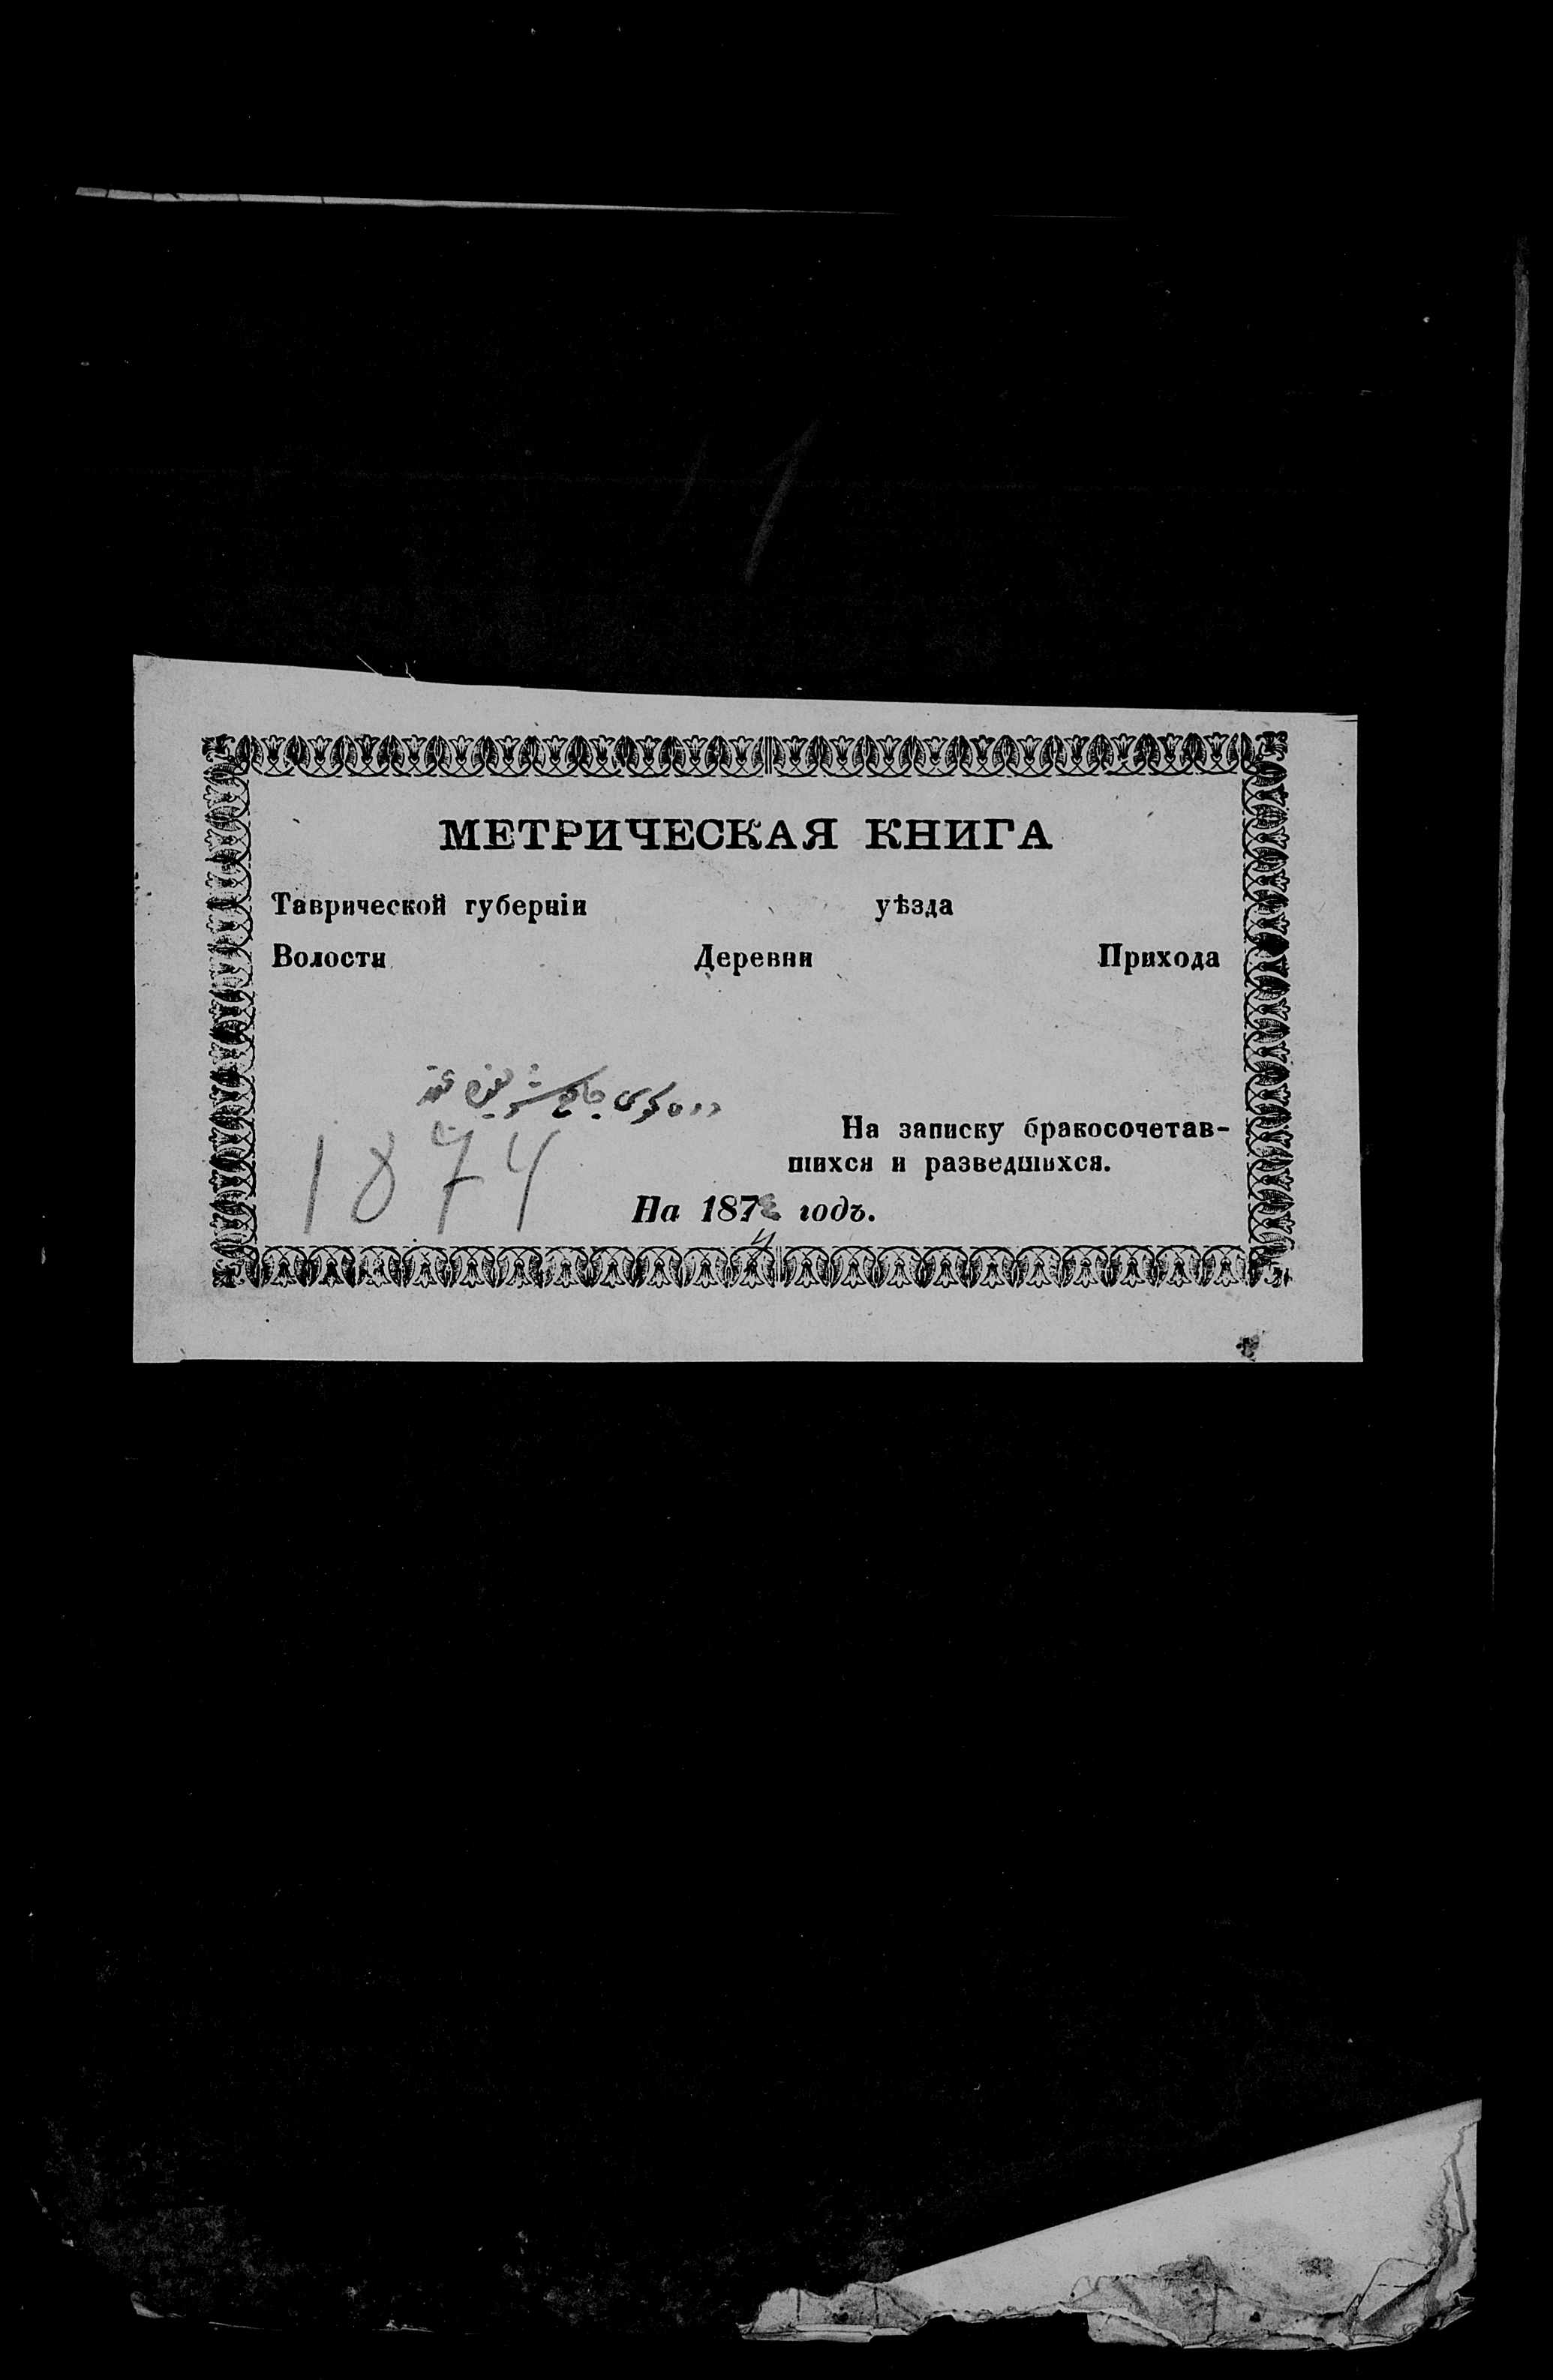 МЕТРИЧЕСКАЯ КНИГА
Таврической губерніи уѣзда
Волости Деревни Прихода
دره كوى جامع شريفنه
На записку бракосочетав-
шихся и разведшихся.
1874
На 187 годъ.
4